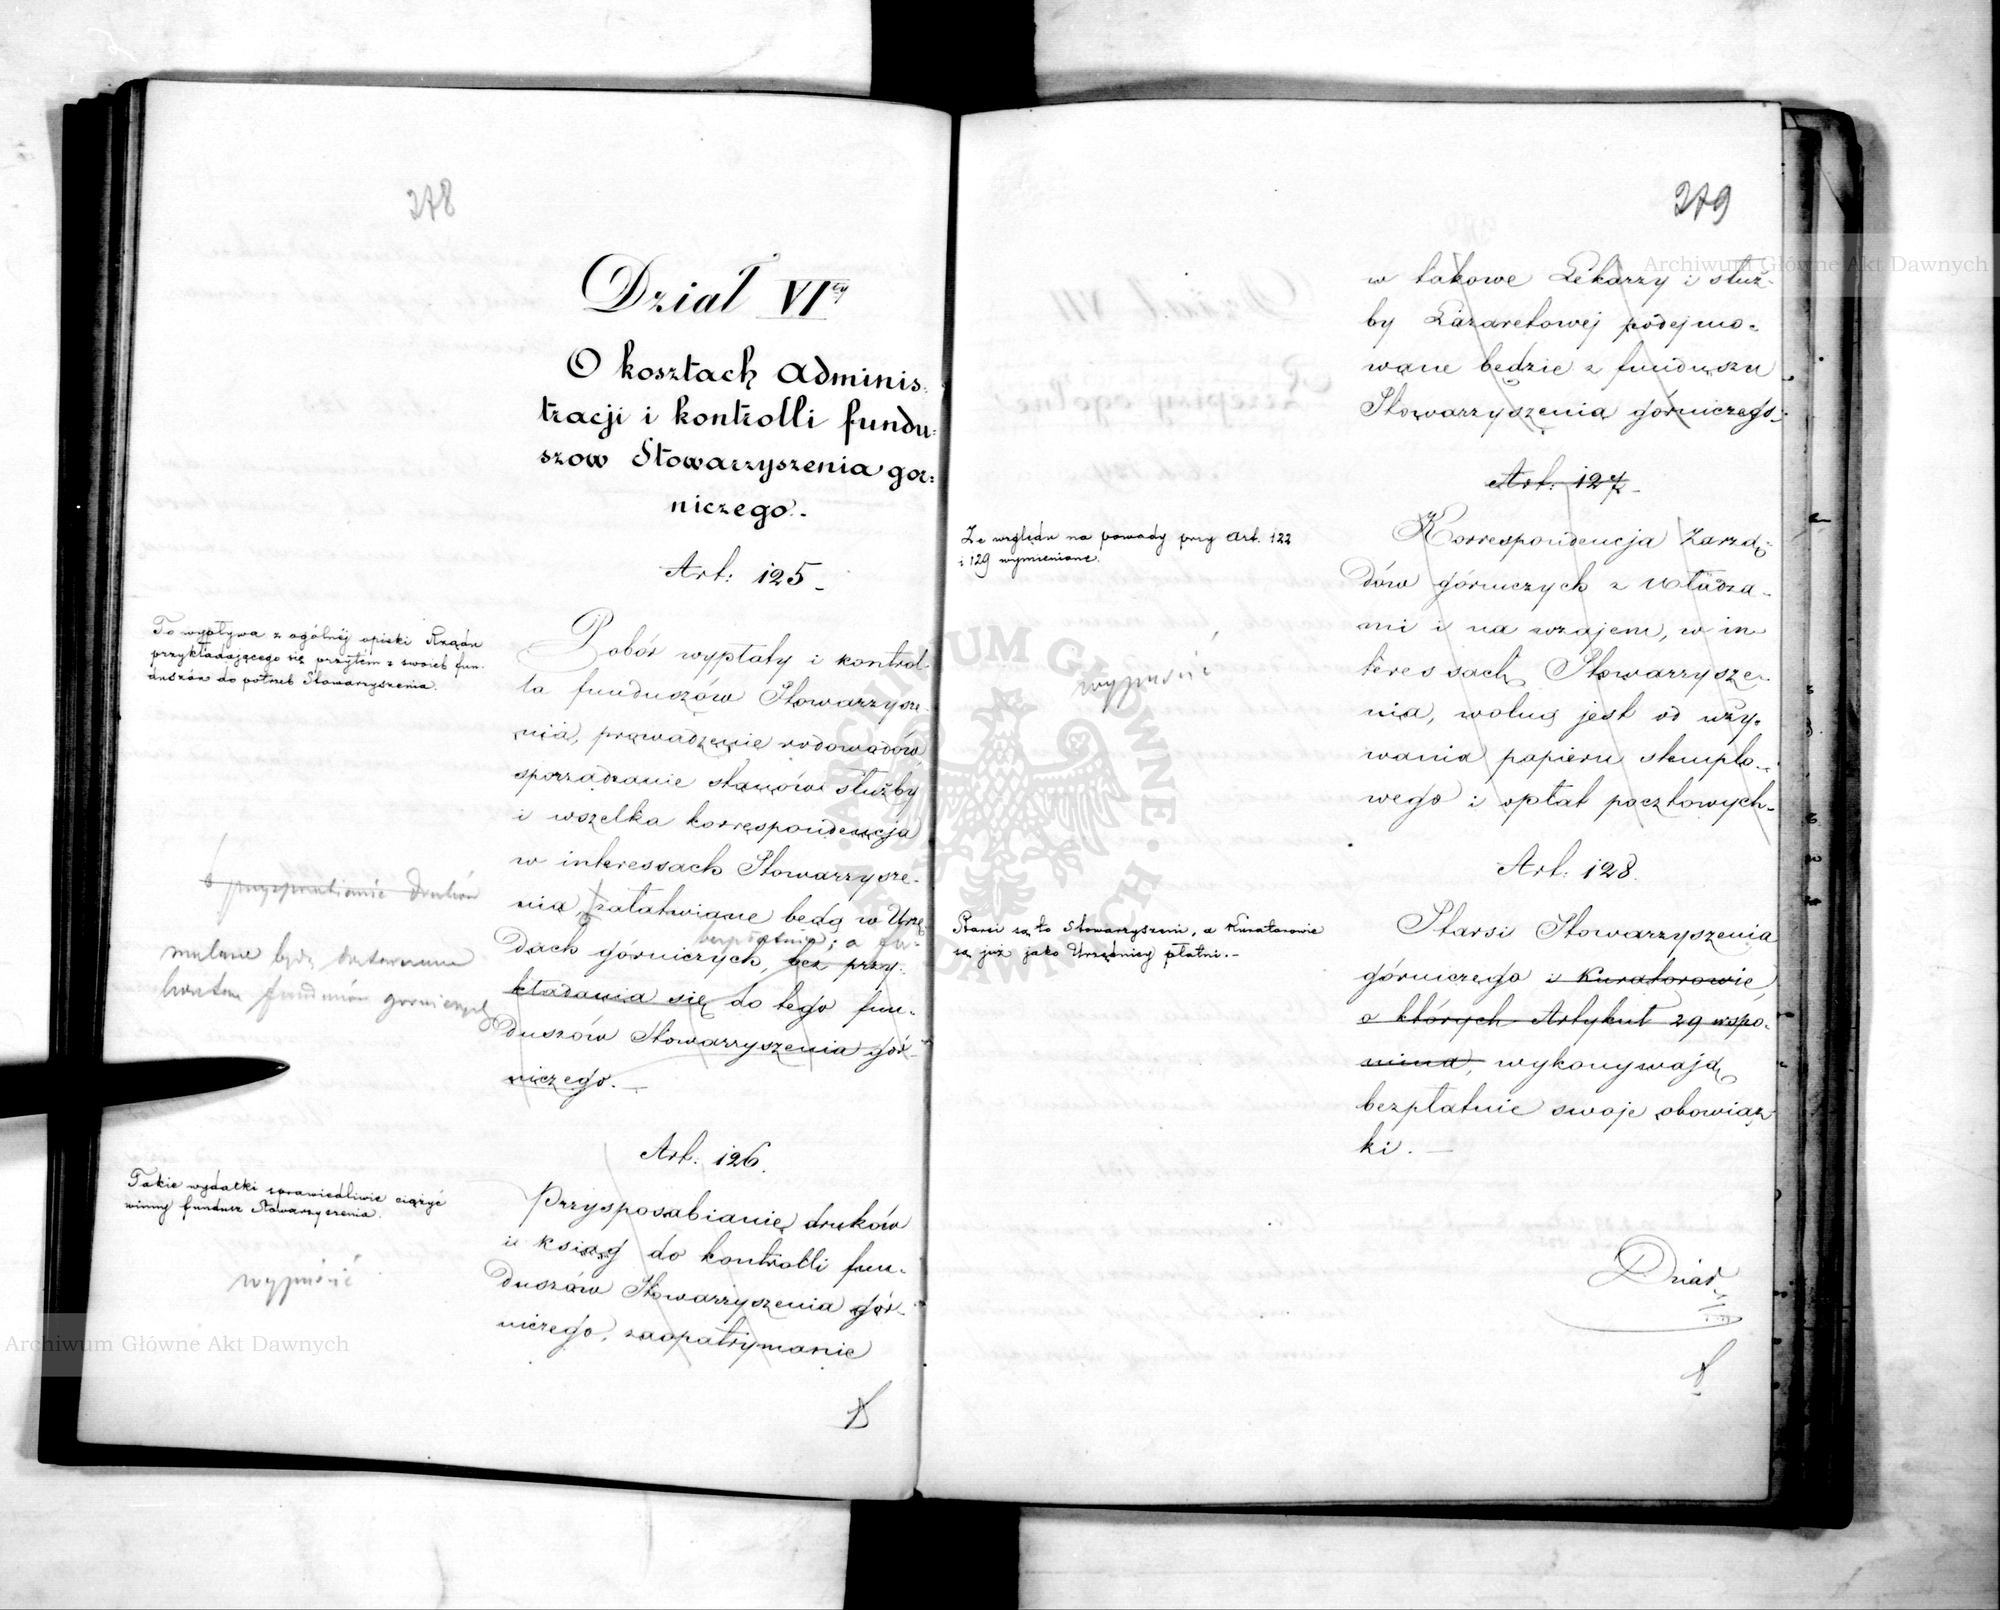 278
Dział VIty
O kosztach adminis-
tracji i kontrolli fundu-
szow Stowarzyszenia gor-
niczego.
Art: 125
To wypływa z ogólnéj opieki Rządu
przykładającego się przytém z swoich fun-
duszów do potrzeb Stowarzyszenia.
Pobór wypłaty i kontrol-
la funduszów Stowarzysze-
nia, prowadzenie rodowodów,
sporządzanie stanów służby
i wszelka korrespondencja
w interessach Stowarzysze-
nia, załatwiane będą w Urzę-
dach górniczych, bez przy-
bezpłatnie; a
kładania się do tego fun-
duszów Stowarzyszenia gór-
niczego.
druków
będą
funduszów górniczych
Art. 126.
Takie wydatki sprawiedliwie ciążyć
winny fundusz Stowarzyszenia.
wypuścić
Przysposabianie druków
i ksiąg do kontrolli fun-
duszów Stowarzyszenia gór-
niczego, zaopatrymanie
279
w takowe Lekarzy i służ-
by Lazaretowéj podejmo-
wane będzie z funduszu
Stowarzyszenia górniczego.
Art: 127
Ze względu na powody przy Art. 122
i 129 wymienione.
wypuścić
Korrespondencja Zarzą-
dów górniczych z Władza-
mi i na wzajem, w in-
teressach Stowarzysze-
nia, wolną jest od uży-
wania papieru stemplo-
wego i opłat pocztowych.
Art. 128.
Starsi są to Stowarzyszeni, a Kuratorowie
są już jako Urzędnicy płatni.
Starsi Stowarzyszenia
górniczego i Kuratorowie,
o których Artykuł 29 wspo-
mina, wykonywają
bezpłatnie swoje obowiąz-
ki.
Dział
VII
Archiwum Główne Akt Dawnych
Archiwum Główne Akt Dawnych
ARCHIWUM GŁÓWNE AKT DAWNYCH